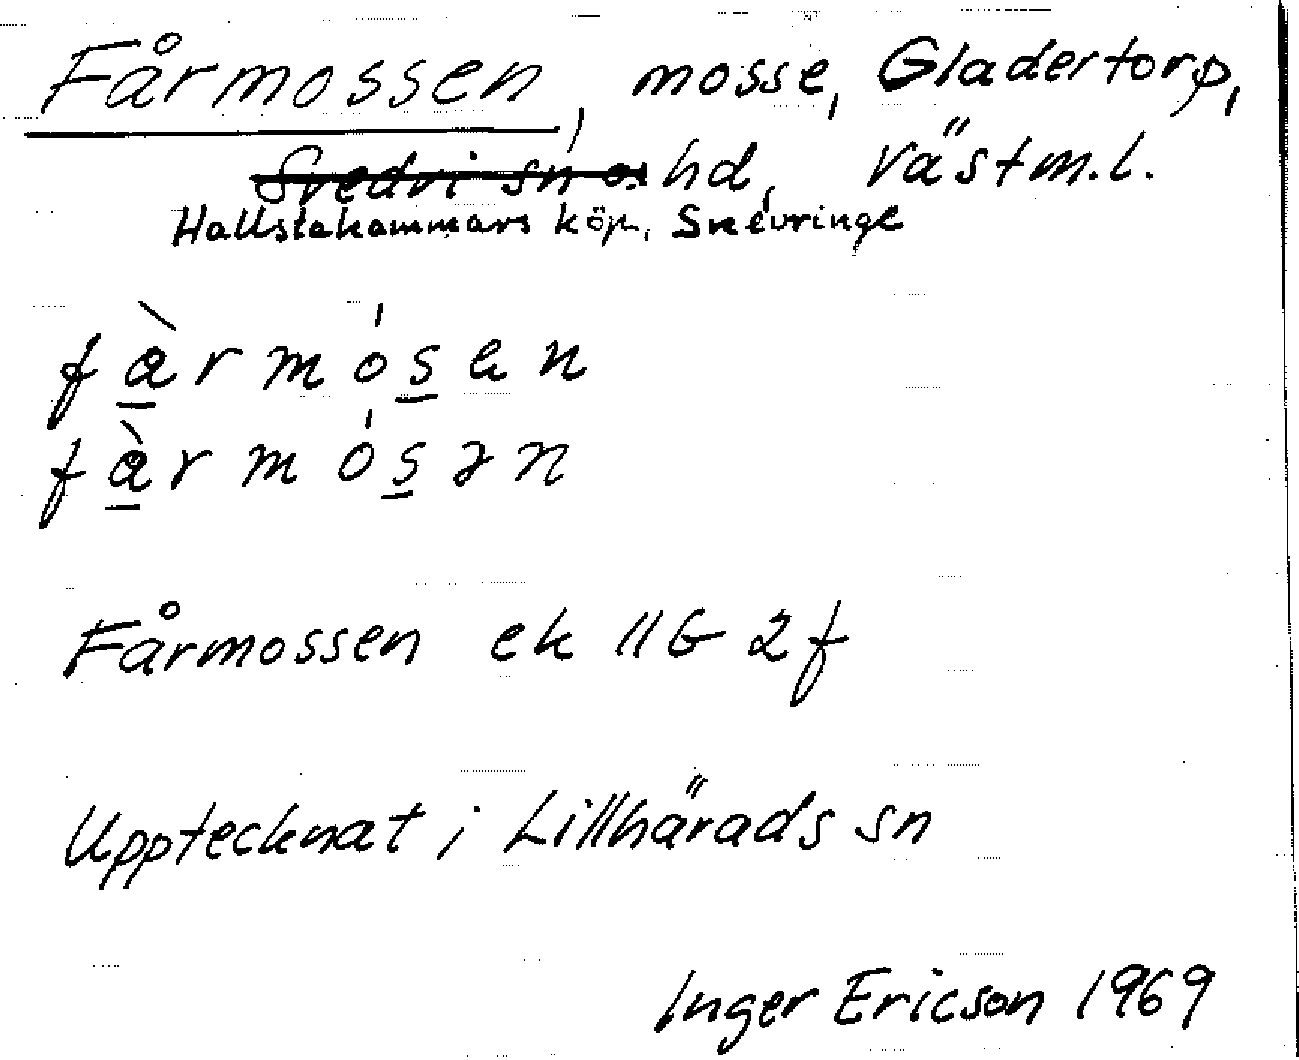 Fårmossen, mosse, Gladertorp,
Svedvi sn o. hd, Västm.l.
Hallstahammars köp, Snevringe
fàrmósen
fàrmósən
Fårmossen ek 11G 2f
Upptecknat i Lillhärads sn
Inger Ericson 1969